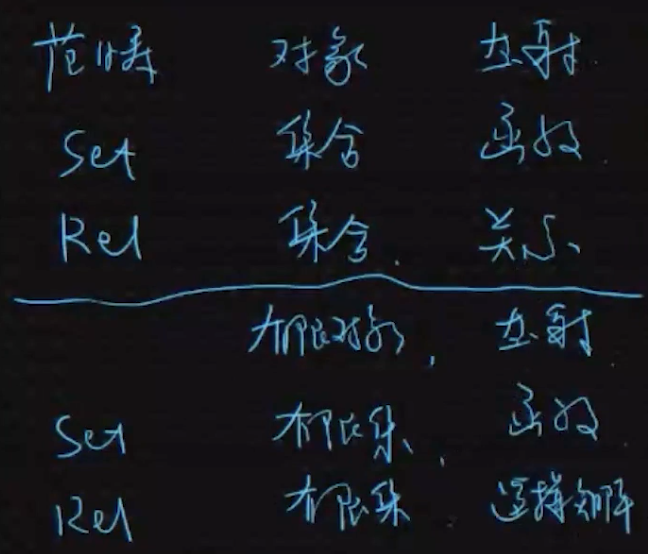 范畴 对象 态射
Set 集合 函数
Rel 集合. 关系
有限对象, 态射
Set 有限集, 函数
Rel 有限集 逻辑矩阵